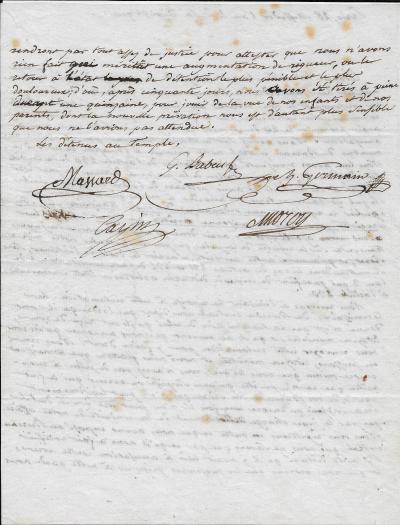 rendront par tout assez de justice pour attester que nous n'avons
rien fait qui méritât une augmentation de rigueur, ou le
retour à l'état de détention le plus pénible et le plus
douloureux, d'où, après cinquante jours, nous avons été tirés à peine
durant une quinzaine, pour jouir de la vue de nos enfants et de nos
parents, dont la nouvelle privation nous est d'autant plus sensible
que nous ne l'avions pas attendue.
Les détenus au temple.
G. Babeuf
Massard Ch. Germain
Cazin Moroy